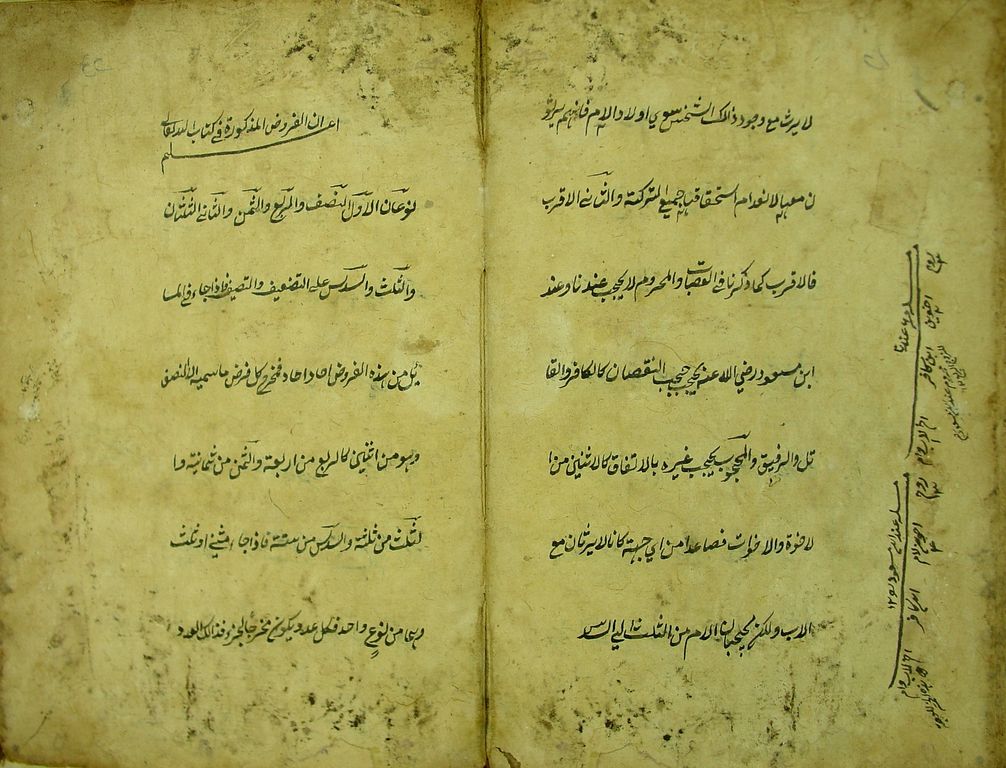 لا يرث مع وجود ذالك الشخص سوي اولاد الام فانهم يرثو
ن معها لانعدام استحقاقها جميع التركة والثاني الاقرب
فالاقرب كما ذكرنا في العصبات والمحروم لا يحجب عندنا وعند
ابن مسعود رضي الله عنه يحجب حجب النقصان كالكافر والقا
تل والرقيق والمحجوب يحجب غيره بالاتفاق كالاثنين من ا
لاخوة والاخوات فصاعدا من اي جهة كانا لا يرثان مع
الاب ولكن يحجبان الام من الثلث الي السدس
اعلم ان الفروض المذكورة في كتاب الله تعالي
نوعان الاول النصف والربع والثمن والثاني الثلثان
والثلث والسدس علي التضعيف والتنصيف فاذا جاء في المسا
يل من هذه الفروض احاد احاد فمخرج كل فرض ماسميه الا النصف
وهو من اثنين كالربع من اربعة والثمن من ثمانية وا
لثلث من ثلثة والسدس من ستة فاذا جاء مثني او ثلث
وهما من نوع واحد فكل عدد يكون مخرجا لجزء فذالك العدد
زوج
اختين
ابن كافر
زوج